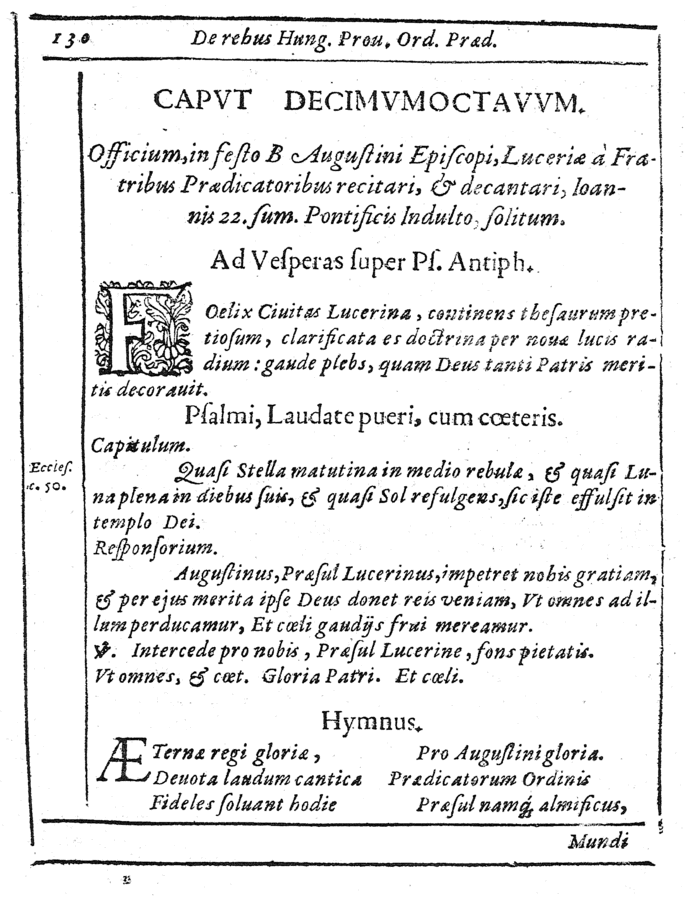 130 De rebus Hung. Prou. Ord. Præd.
CAPVT DECIMVMOCTAVVM.
Officium, in feſto B Auguſtini Epiſcopi, Luceriæ à Fra-
tribus Prædicatoribus recitari, & decantari, Ioan-
nis 22. ſum. Pontificis Indulto, ſolitum.
Ad Veſperas ſuper Pſ. Antiph.
FOelix Ciuitas Lucerina, continens theſaurum pre-
tioſum, clarificata es doctrina per nouæ lucis ra-
dium: gaude plebs, quam Deus tanti Patris meri-
tis decorauit.
Pſalmi, Laudate pueri, cum cœteris.
Capitulum.
Eccleſ.
c. 50.
Quaſi Stella matutina in medio rebulæ, & quaſi Lu-
na plena in diebus ſuis, & quaſi Sol refulgens, ſic iſte effulſit in
templo Dei.
Reſponſorium.
Auguſtinus, Præſul Lucerinus, impetret nobis gratiam,
& per ejus merita ipſe Deus donet reis veniam, Vt omnes ad il-
lum perducamur, Et cœli gaudijs frui mereamur.
℣. Intercede pro nobis, Præſul Lucerine, fons pietatis.
Vt omnes, & cœt. Gloria Patri. Et cœli.
Hymnus.
ÆTernæ regi gloriæ,
Deuota laudum cantica
Fideles ſoluant hodie
Pro Auguſtini gloria.
Prædicatorum Ordinis
Præſul namq; almificus,
Mundi